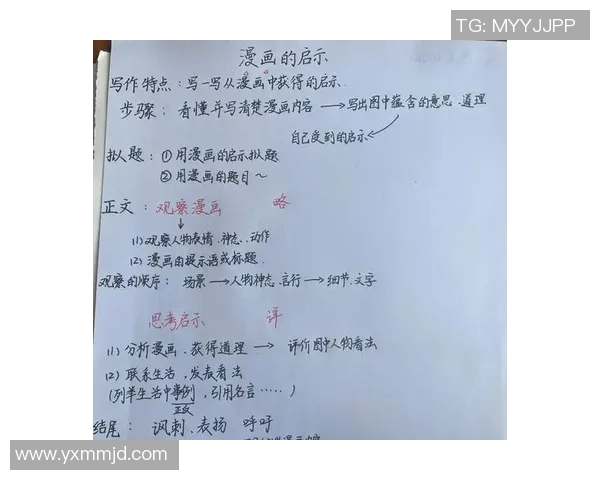 TG: MYYJJPP
漫画的启示
写作特点：写一写从漫画中获得的启示.
步骤：看懂并写清楚漫画内容→写出图中蕴含的意思.道理
自己受到的启示
拟人题：①用漫画的启示拟题
②用漫画的题目～
正文：观察漫画 略
↓
(1)观察人物表情.神志.动作
(2)漫画由提示语或标题.
观察的顺序：场景→人物神志.言行→细节.文字
思考启示 详
(1)分析漫画.获得道理→评价图中人物看法
(2)联系生活,发表看法
(列举生活中事例,引用名言……)
正反
结尾：讽刺.表扬 呼吁
www.yxmmjd.com